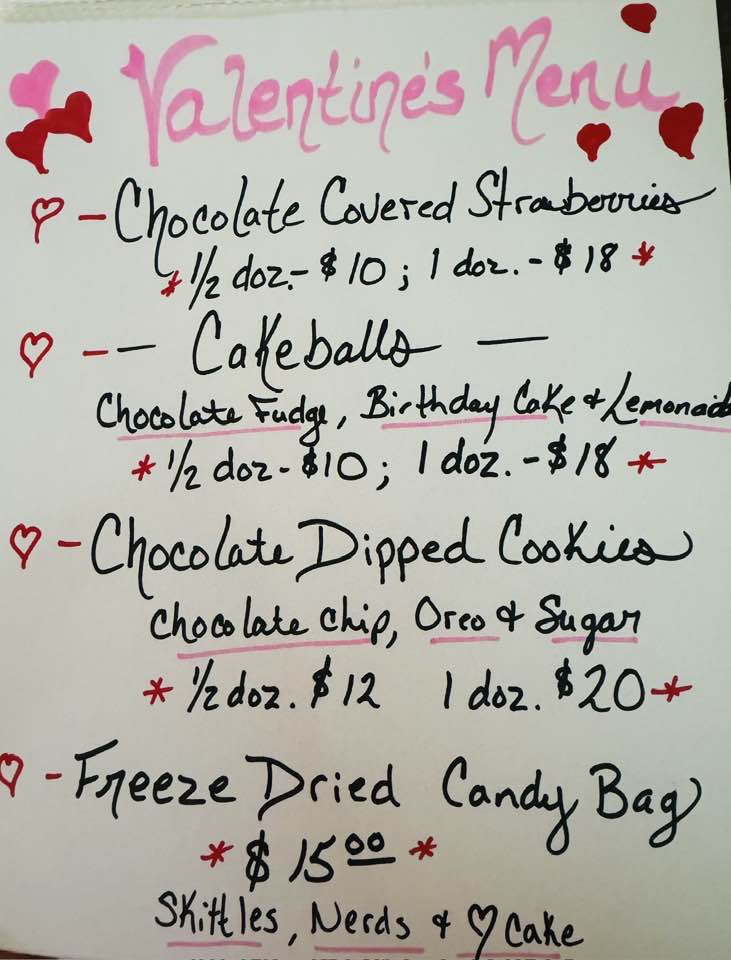 Valentine's Menu
- Chocolate Covered Strawberries
* 1/2 doz. - $10 ; 1 doz. - $18 *
- — Cakeballs —
Chocolate Fudge, Birthday Cake & Lemonade
* 1/2 doz - $10 ; 1 doz. - $18 *
- Chocolate Dipped Cookies
Chocolate Chip, Oreo & Sugar
* 1/2 doz. $12 1 doz. $20 *
- Freeze Dried Candy Bag
* $15.00 *
Skittles, Nerds & ♡ Cake